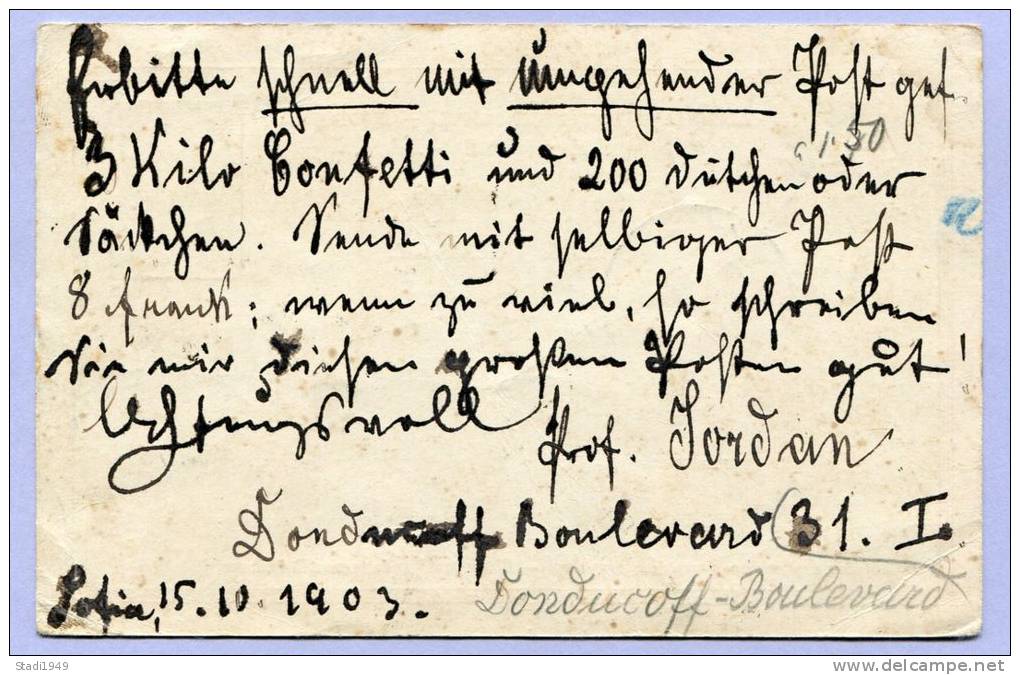 Erbitte schnell mit umgehender Post gef.
3 Kilo Confetti und 200 Dütchen oder
1.50
Säckchen. Sende mit selbiger Post
8 frank; wenn zu viel, so schreiben
Sie mir diesen großen Posten gut!
Achtungsvoll Prof. Jordan
Donducoff Boulevard 31. I.
Sofia, 15.10.1903.
Donducoff-Boulevard
Stadi1949
www.delcampe.net